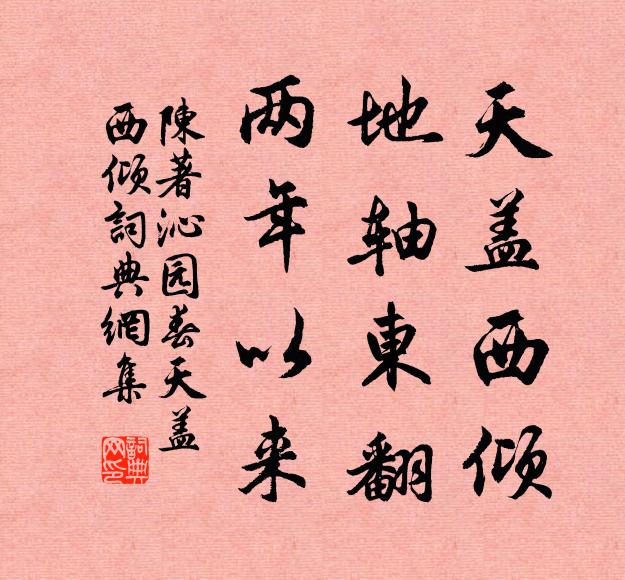 天盖西倾
地轴東翻
两年以来
陳著沁园春天盖
西倾詞典網集
詞典网印